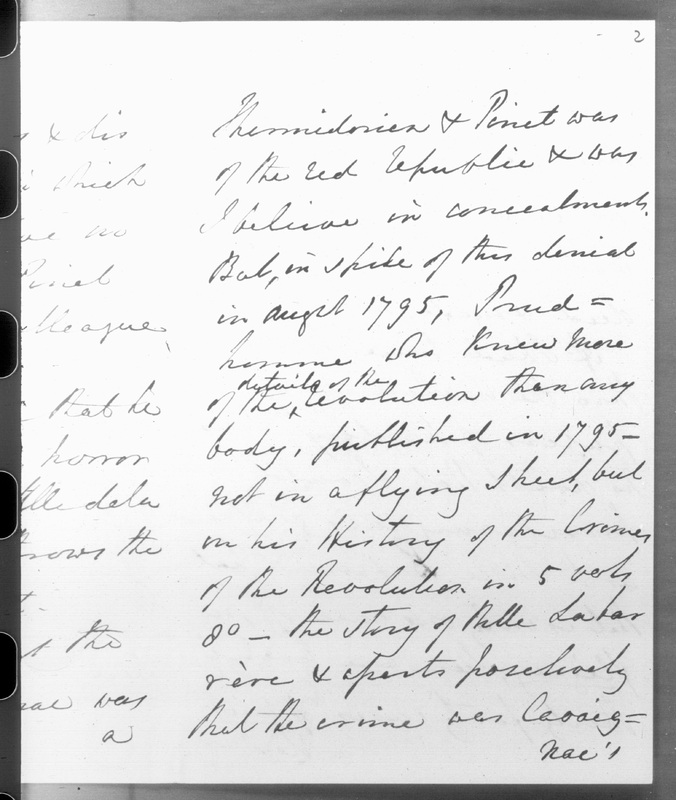 2
s & dis
which
Pinet
lleague,
that he
horror
Mlle dela
rows the
the
nac was
a
Thermidorien & Pinet was
of the red republic & was
I believe in concealment.
But, in spite of this denial
in augst 1795, Prud=
homme who knew more
details of the
of the revolution than any
body, published in 1795 –
not in a flying sheet, but
in his History of the Crimes
of the Revolution in 5 vols
8º – the story of Mlle Labar
rère & asserts positively
that the crime was Cavaig=
nac's